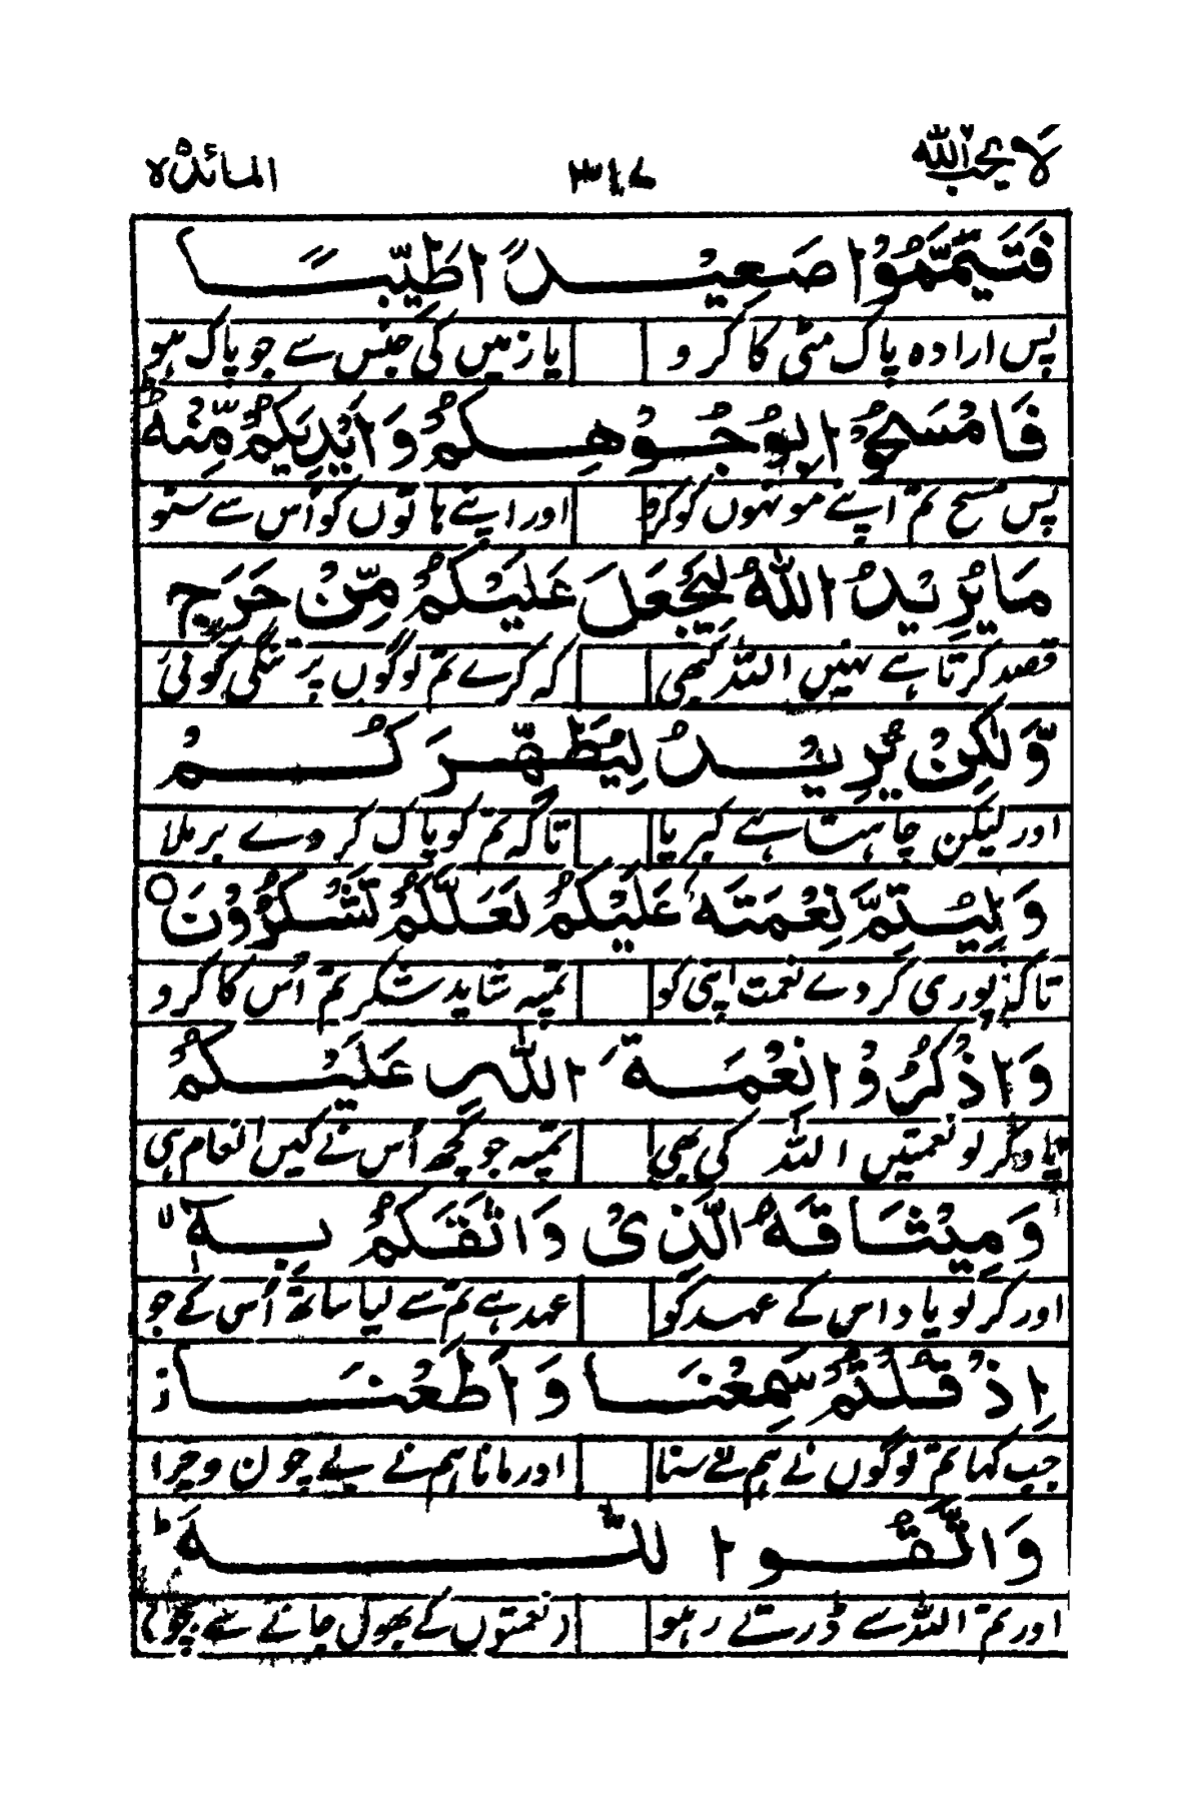 لا یحب اللہ ۶ ۳۴۷ المائدۃ ۵
فَتَيَمَّمُوْا صَعِيْدًا طَيِّبًا
پس ارادہ پاک مٹی کا کرو یا زمیں کی جنس سے جو پاک ہو
فَامْسَحُوْا بِوُجُوْهِكُمْ وَاَيْدِيَكُمْ مِّنْهُ ؕ
پس مسح تم اپنے مونہوں کو کرو اور اپنے ہاتوں کو اُس سے سنو
مَا يُرِيْدُ اللّٰهُ لِيَجْعَلَ عَلَيْكُمْ مِّنْ حَرَجٍ
قصد کرتا ہے نہیں اللہ کبھی کہ کرے تم لوگوں پر تنگی کوئی
وَّلٰكِنْ يُّرِيْدُ لِيُطَهِّرَكُمْ
اور لیکن چاہت ہے کبریا تاکہ تم کو پاک کر دے برملا
وَلِيُتِمَّ نِعْمَتَهٗ عَلَيْكُمْ لَعَلَّكُمْ تَشْكُرُوْنَ ○
تاکہ پوری کر دے نعمت اپنی کو تمپہ شاید شکر تم اُس کا کرو
وَاذْكُرُوْا نِعْمَةَ اللّٰهِ عَلَيْكُمْ
یاد کر لو نعمتیں اللہ کی بھی تمپہ جو کچھ اُس نے کیں انعام ہی
وَمِيْثَاقَهُ الَّذِىْ وَاثَقَكُمْ بِهٖٓ ۙ
اور کر لو یاد اس کے عہد کو عہد ہے تم سے لیا ساتھ اُس کے جو
اِذْ قُلْتُمْ سَمِعْنَا وَاَطَعْنَا ز
جب کہا تم لوگوں نے ہم نے سنا اور مانا ہم نے بے چون و چرا
وَاتَّقُوا اللّٰهَ ؕ
اور تم اللہ سے ڈرتے رہو (نعمتوں کے بھول جانے سے بچو)